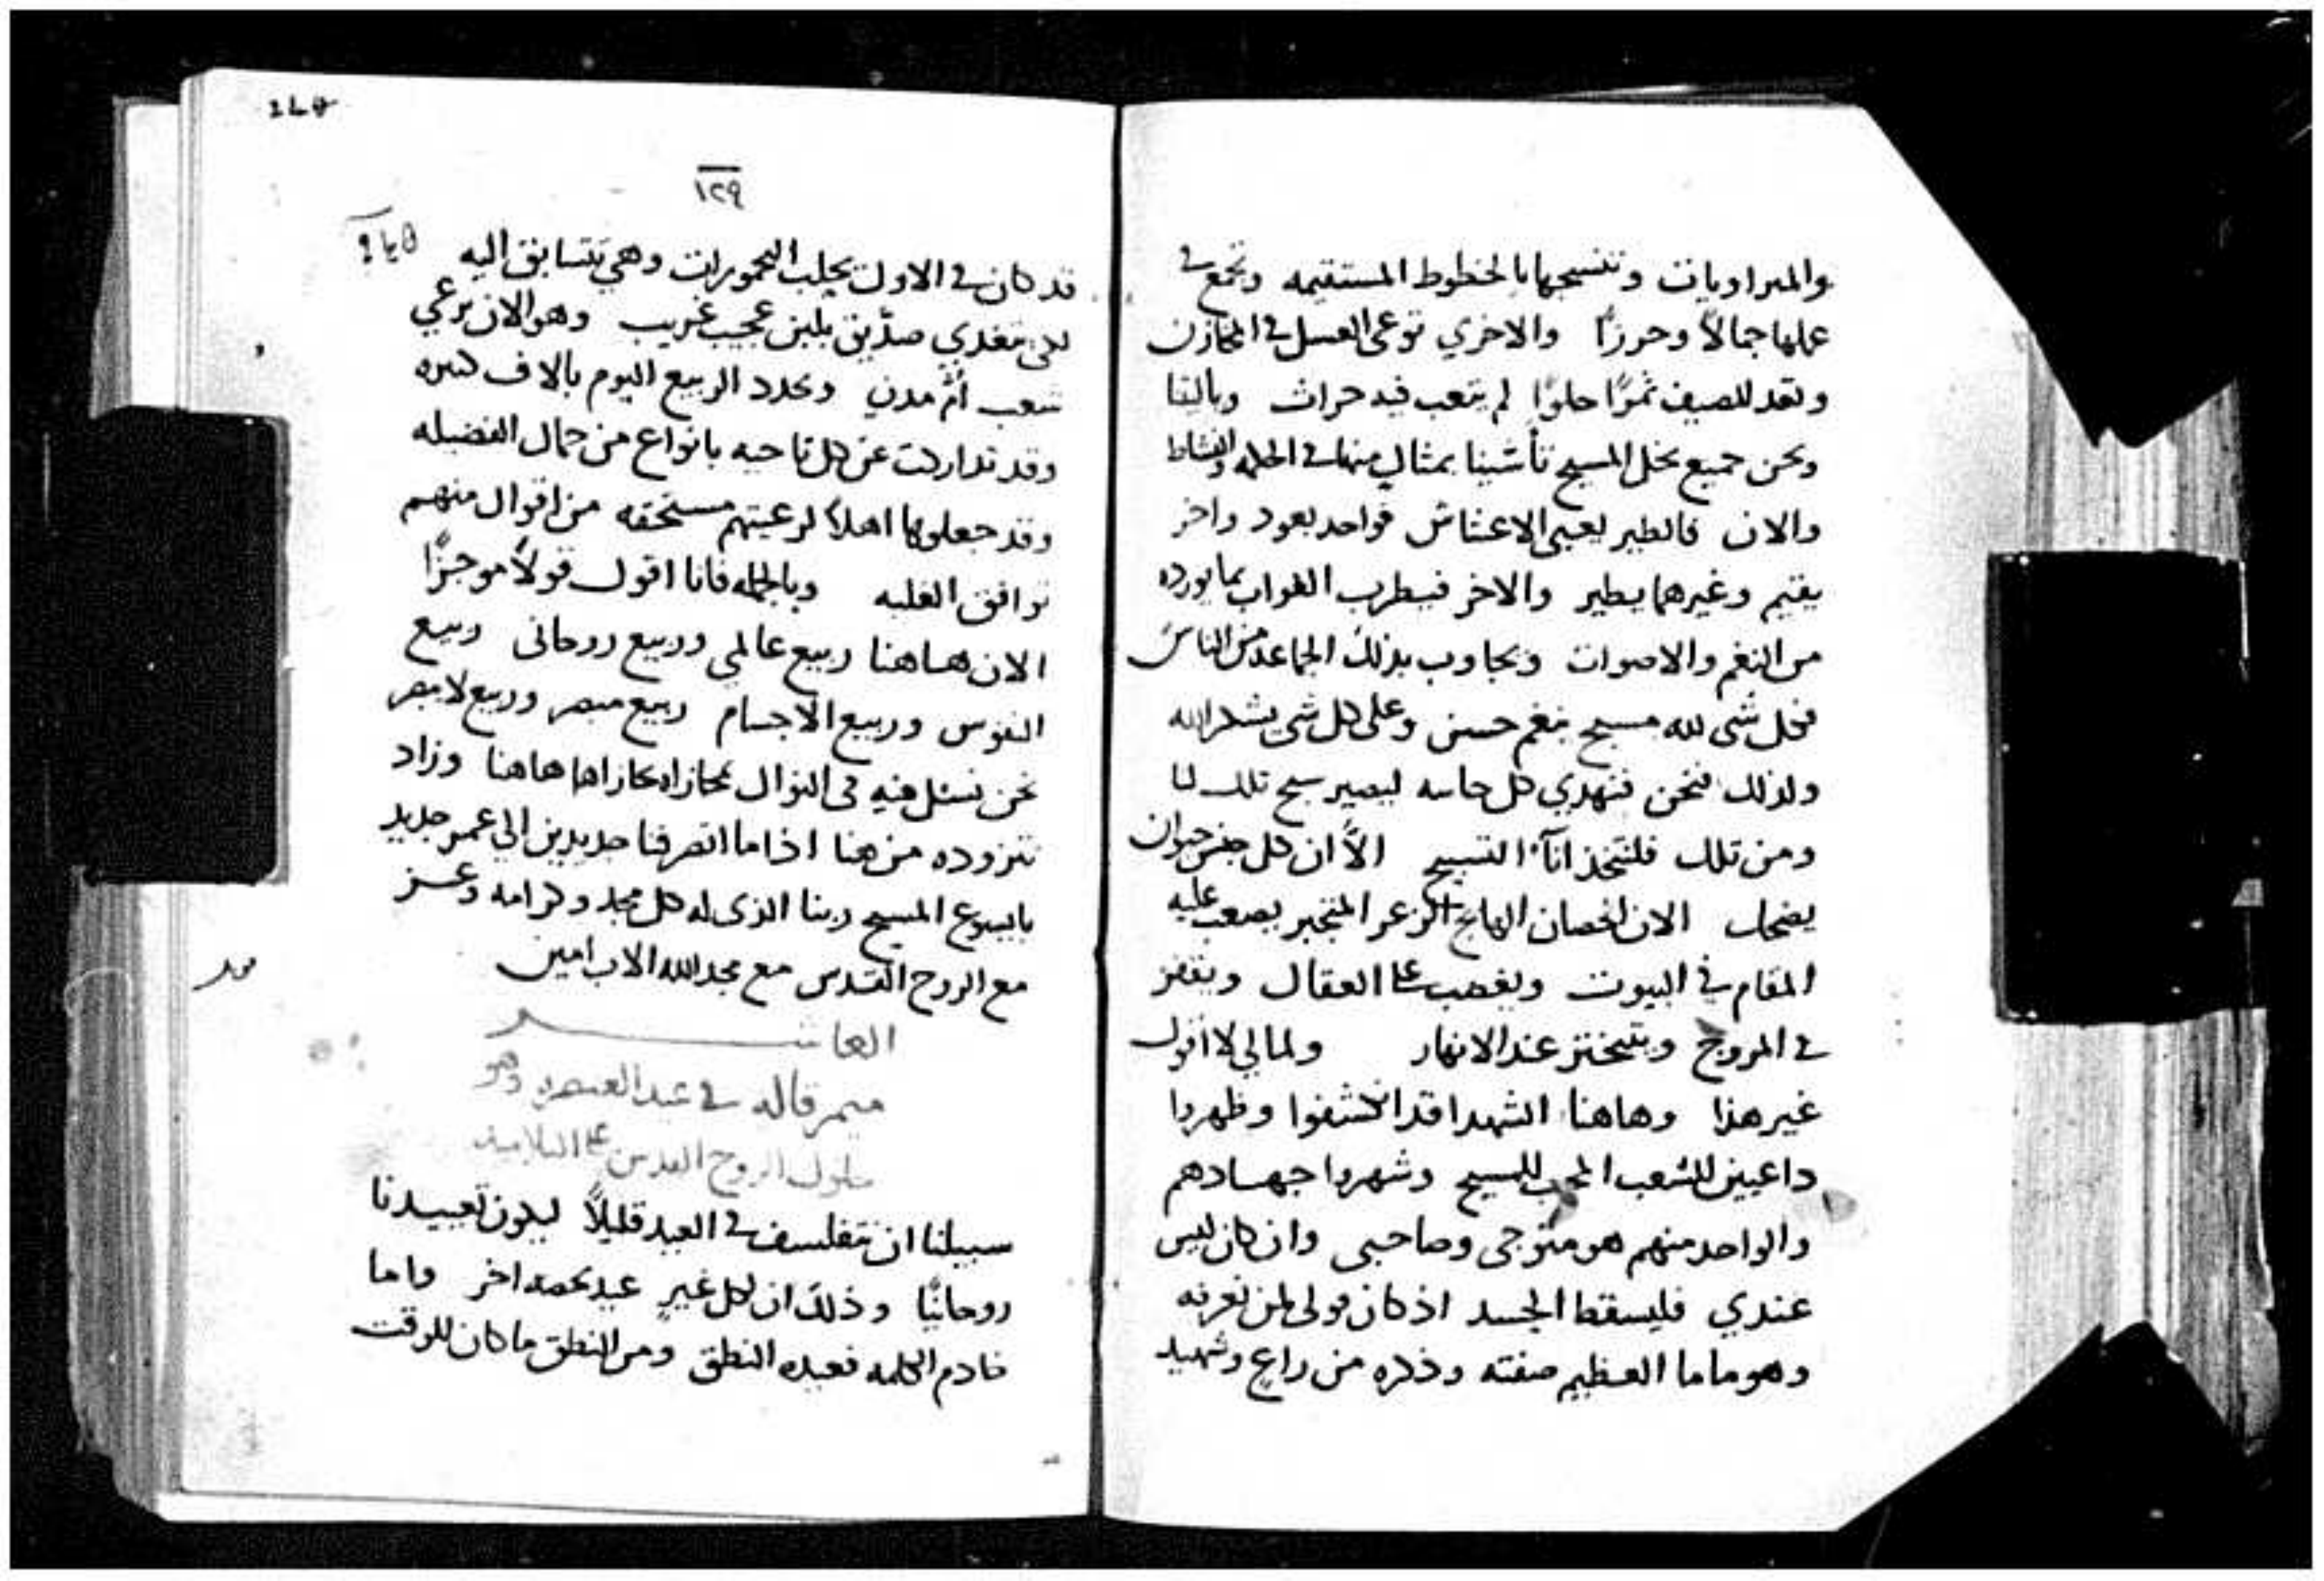 والمبراويات وتنسجها بالخطوط المستقيمه وتجمع في
عملها جمالاً وحرزًا والاخري توعي العسل في المخازن
وتعد للصيف ثمرًا حلوًا لم يتعب فيه حراث وياليتا
ونحن جميع نحل المسيح تأشينا بمثال منها في الحكمه والنشاط
والان فالطير يعبي الاعشاش فواحد يعود واخر
يقيم وغيرهما يطير والاخر فيطرب الغاب بما يورده
من النغم والاصوات ويجاوب بذلك الجماعه من الناس
فكل شي لله مسبح بنغم حسن وعلي كل شي يشكر الله
ولذلك فنحن فنهدي كل حاسه ليصير سبح تلك لنا
ومن تلك فلنتخذ انآ التسبيح الاّ ان كل جنس حيوان
يضحك الان الحصان الهايج الزعر المتجبر يصعب عليه
المقام في البيوت ويغصب علا العقال ويقفز
في المروج ويتبختر عند الانهار ولمالي لا اقول
غير هذا وهاهنا الشهدا قد انكشفوا وظهروا
داعيين للشعب المحب للمسيح وشهروا جهادهم
والواحد منهم هو متوجي وصاحبي وان كان ليس
عندي فليسقط الجسد اذ كان قولي لمن نعرفه
وهو ماما العظيم صفته وذكره من راعٍ وشهيد
١٢٩
قد كان في الاول يحلب اليحمورات وهي تتسابق اليه
لكي تغدي صدّيق بلبن عجيب غريب وهو الان يرعي
شعب أم مدن ويجدد الربيع اليوم بالاف كثيره
وقد تداركت عن كل ناحيه بانواع من جمال الفضيله
وقد جعلوها اهلاً لرعيتهم مستحقه من اقوال منهم
توافق الغلبه وبالجمله فانا اقول قولاً موجزًا
الان هاهنا ربيع عالمي وربيع روحاني ربيع
النفوس وربيع الاجسام ربيع مبصر وربيع لا يبصر
نحن نسئل فيه في النوال مجازاه كازاها هاهنا وزاد
نتزوده من هنا اذا ما انصرفنا جديدين الي عمر جديد
بايسوع المسيح ربنا الذي له كل مجد وكرامه وعز
مع الروح القدس مع مجد الله الاب امين
العاشر
ميمر قاله في عيد العنصره وهو
حلول الروح القدس علي التلاميذ
سبيلنا ان نتفلسف في العيد قليلاً ليكون تعييدنا
روحانيًا وذلك ان لكل غيرٍ عيد يخصه اخر واما
خادم الكلمه فعيده النطق ومن النطق ما كان للوقت